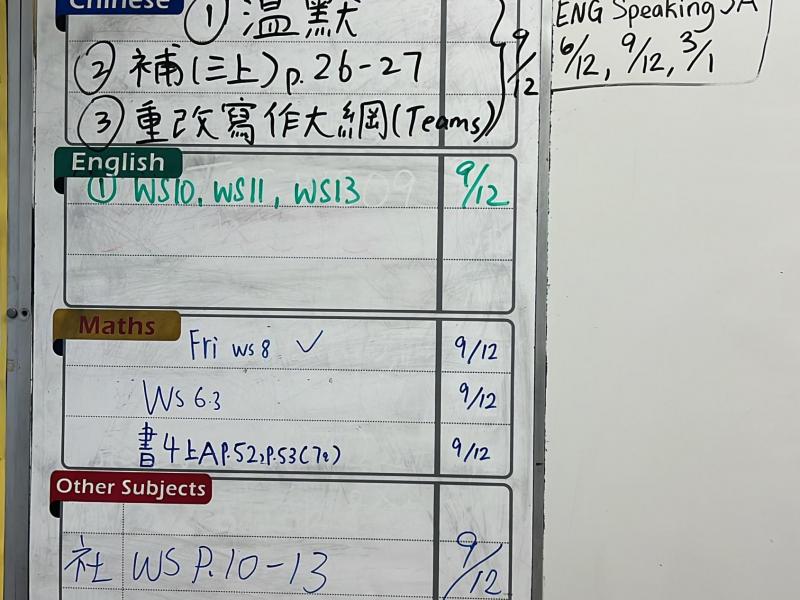 Chinese
① 温默
② 補(三上)p.26-27
③ 重改寫作大綱(Teams)
9/12
ENG Speaking
6/12, 9/12, 3/1
English
① WS10, WS11, WS13 9/12
Maths
Fri WS 8 ✓ 9/12
WS 6.3 9/12
書4上A P.52,P.53(7題) 9/12
Other Subjects
社 WS P.10-13 9/12